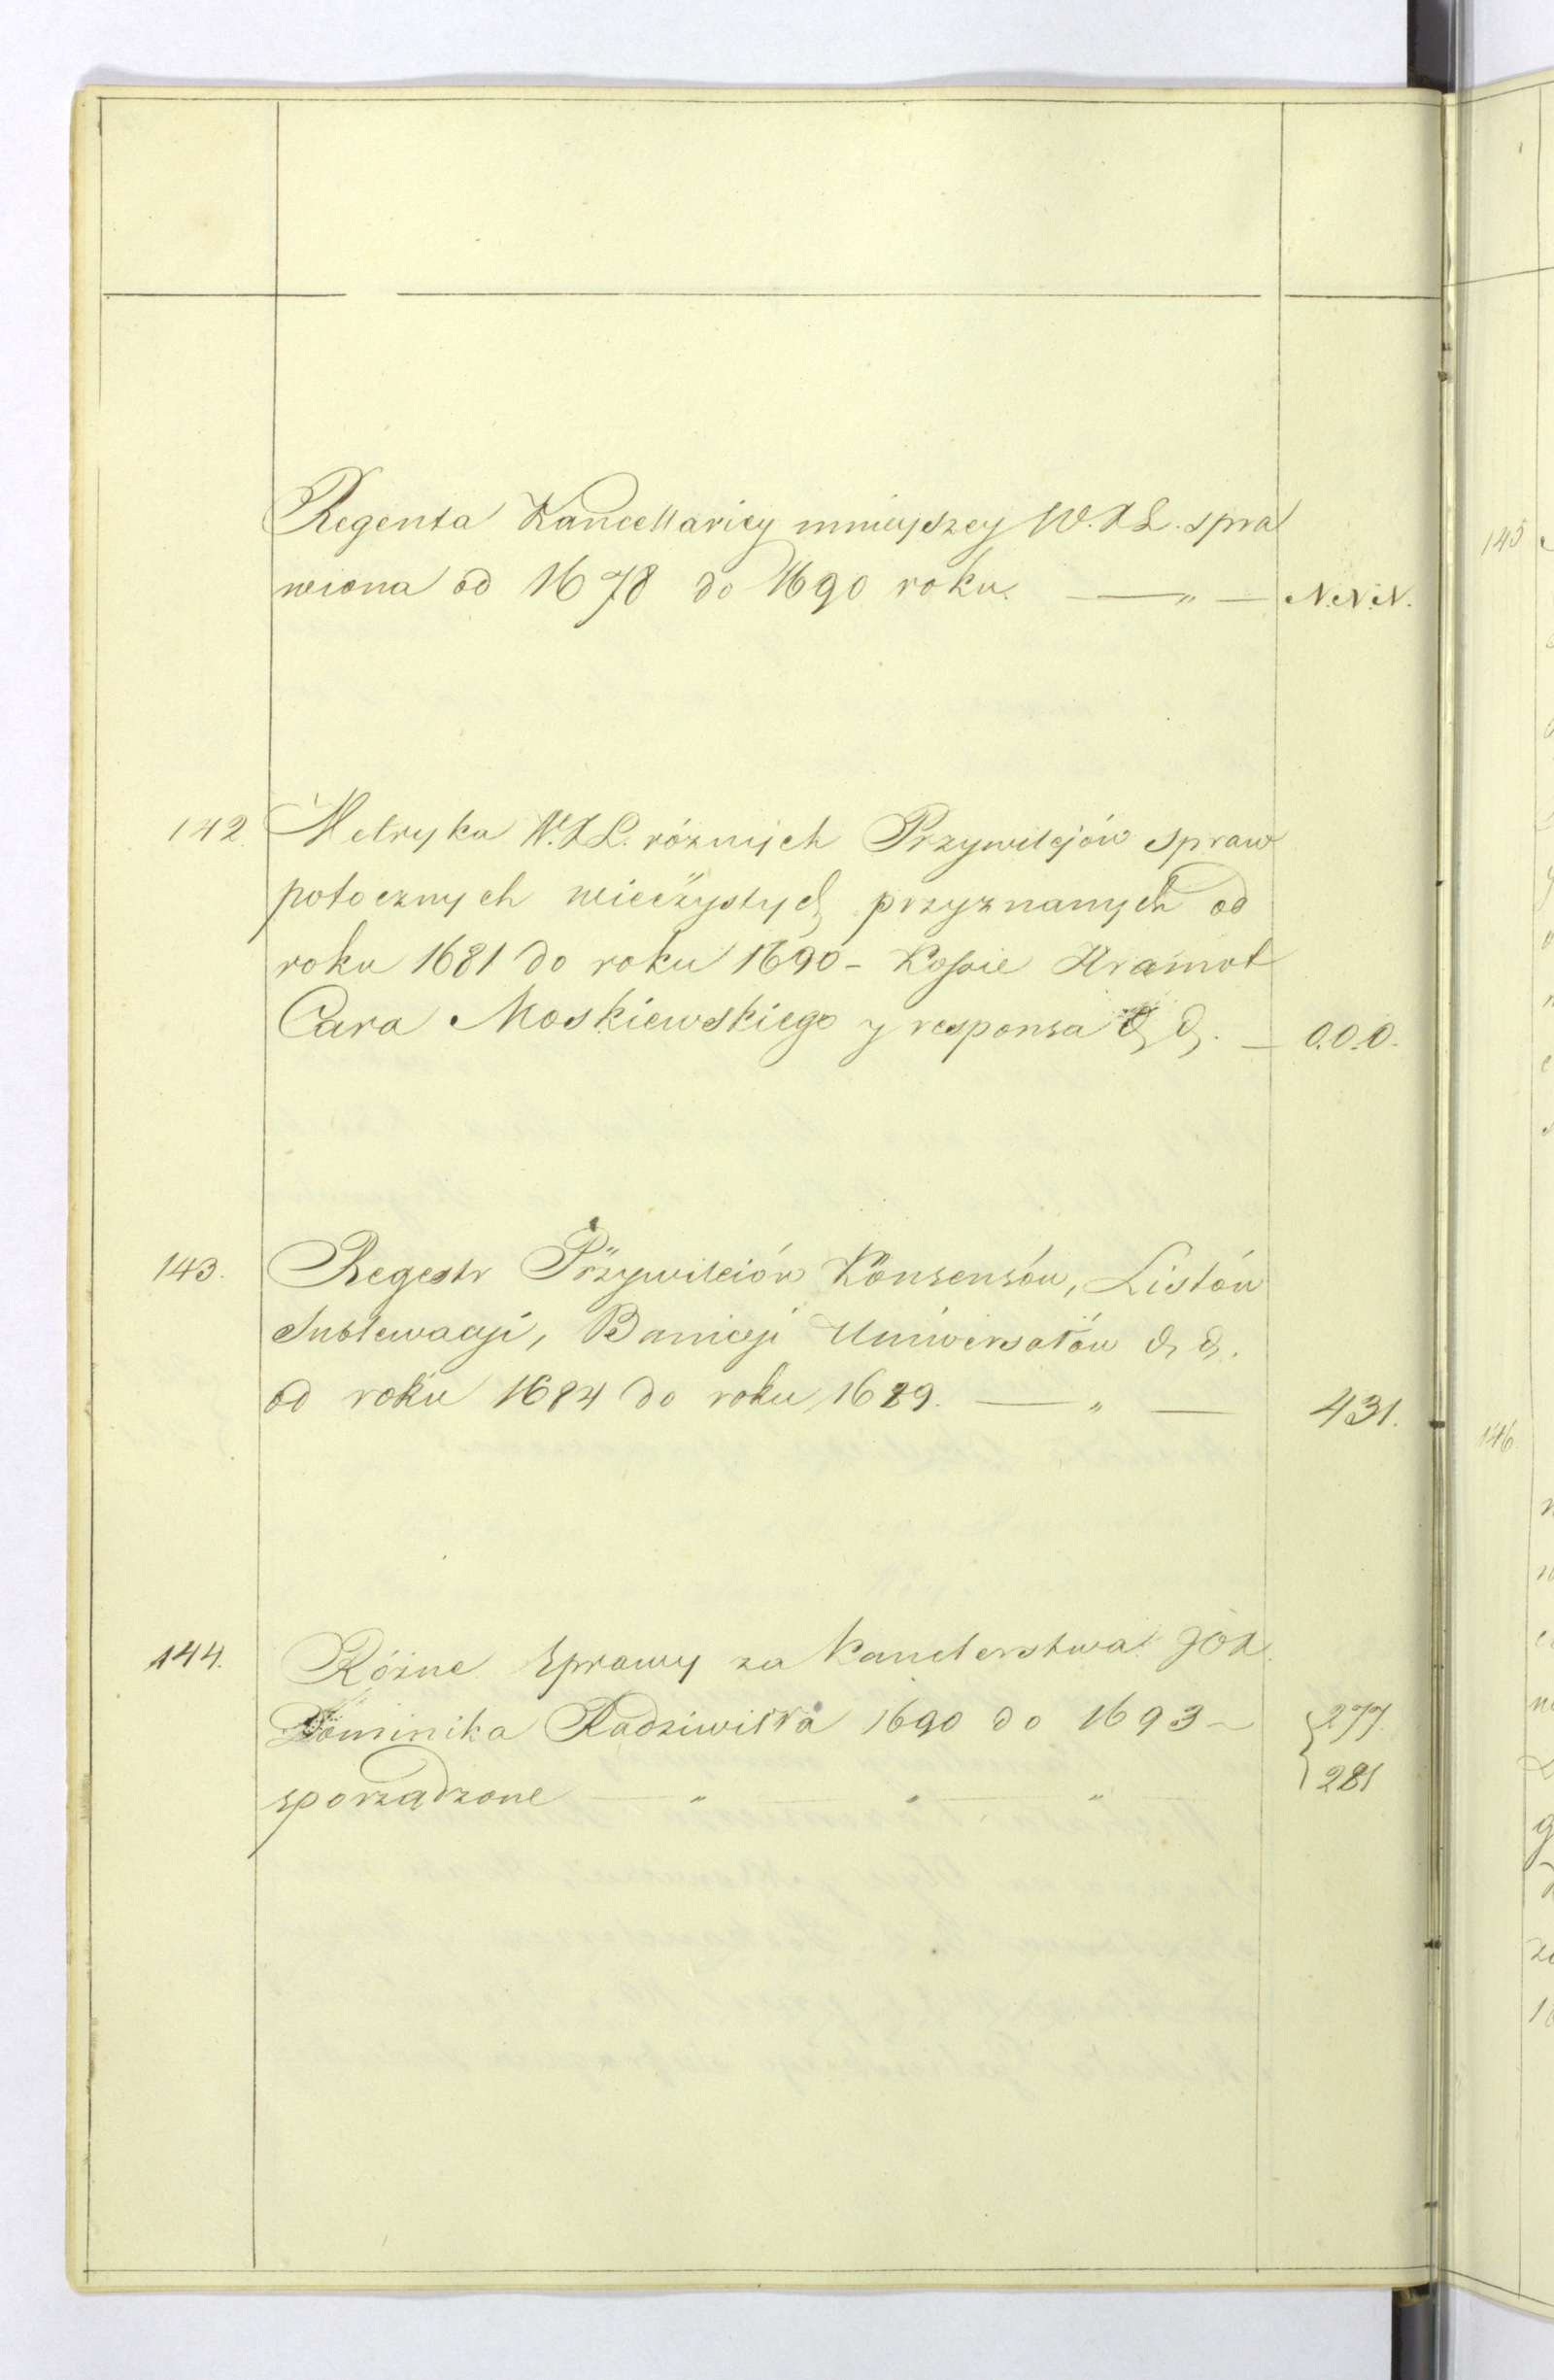 Regenta Kancellariey mnieyszey W.X.L. spra
wiona od 1678 do 1690 roku. — " — N.N.N.
142. Metryka W.X.L. różnych Przywilejów spraw
potocznych wieczystych przyznanych od
roku 1681 do roku 1690 - Kopie Hramot
Cara Moskiewskiego y responsa & &. — O.O.O.
143. Regestr Przywileiów Konsensów, Listów
Sublewacji, Banicji Uniwersałów & &.
od roku 1684 do roku 1689. — " — 431.
144. Różne sprawy za Kanclerstwa Józ.
Dominika Radziwiłła 1690 do 1693 - 277
sporządzone — " — " — " — 281
145
146.